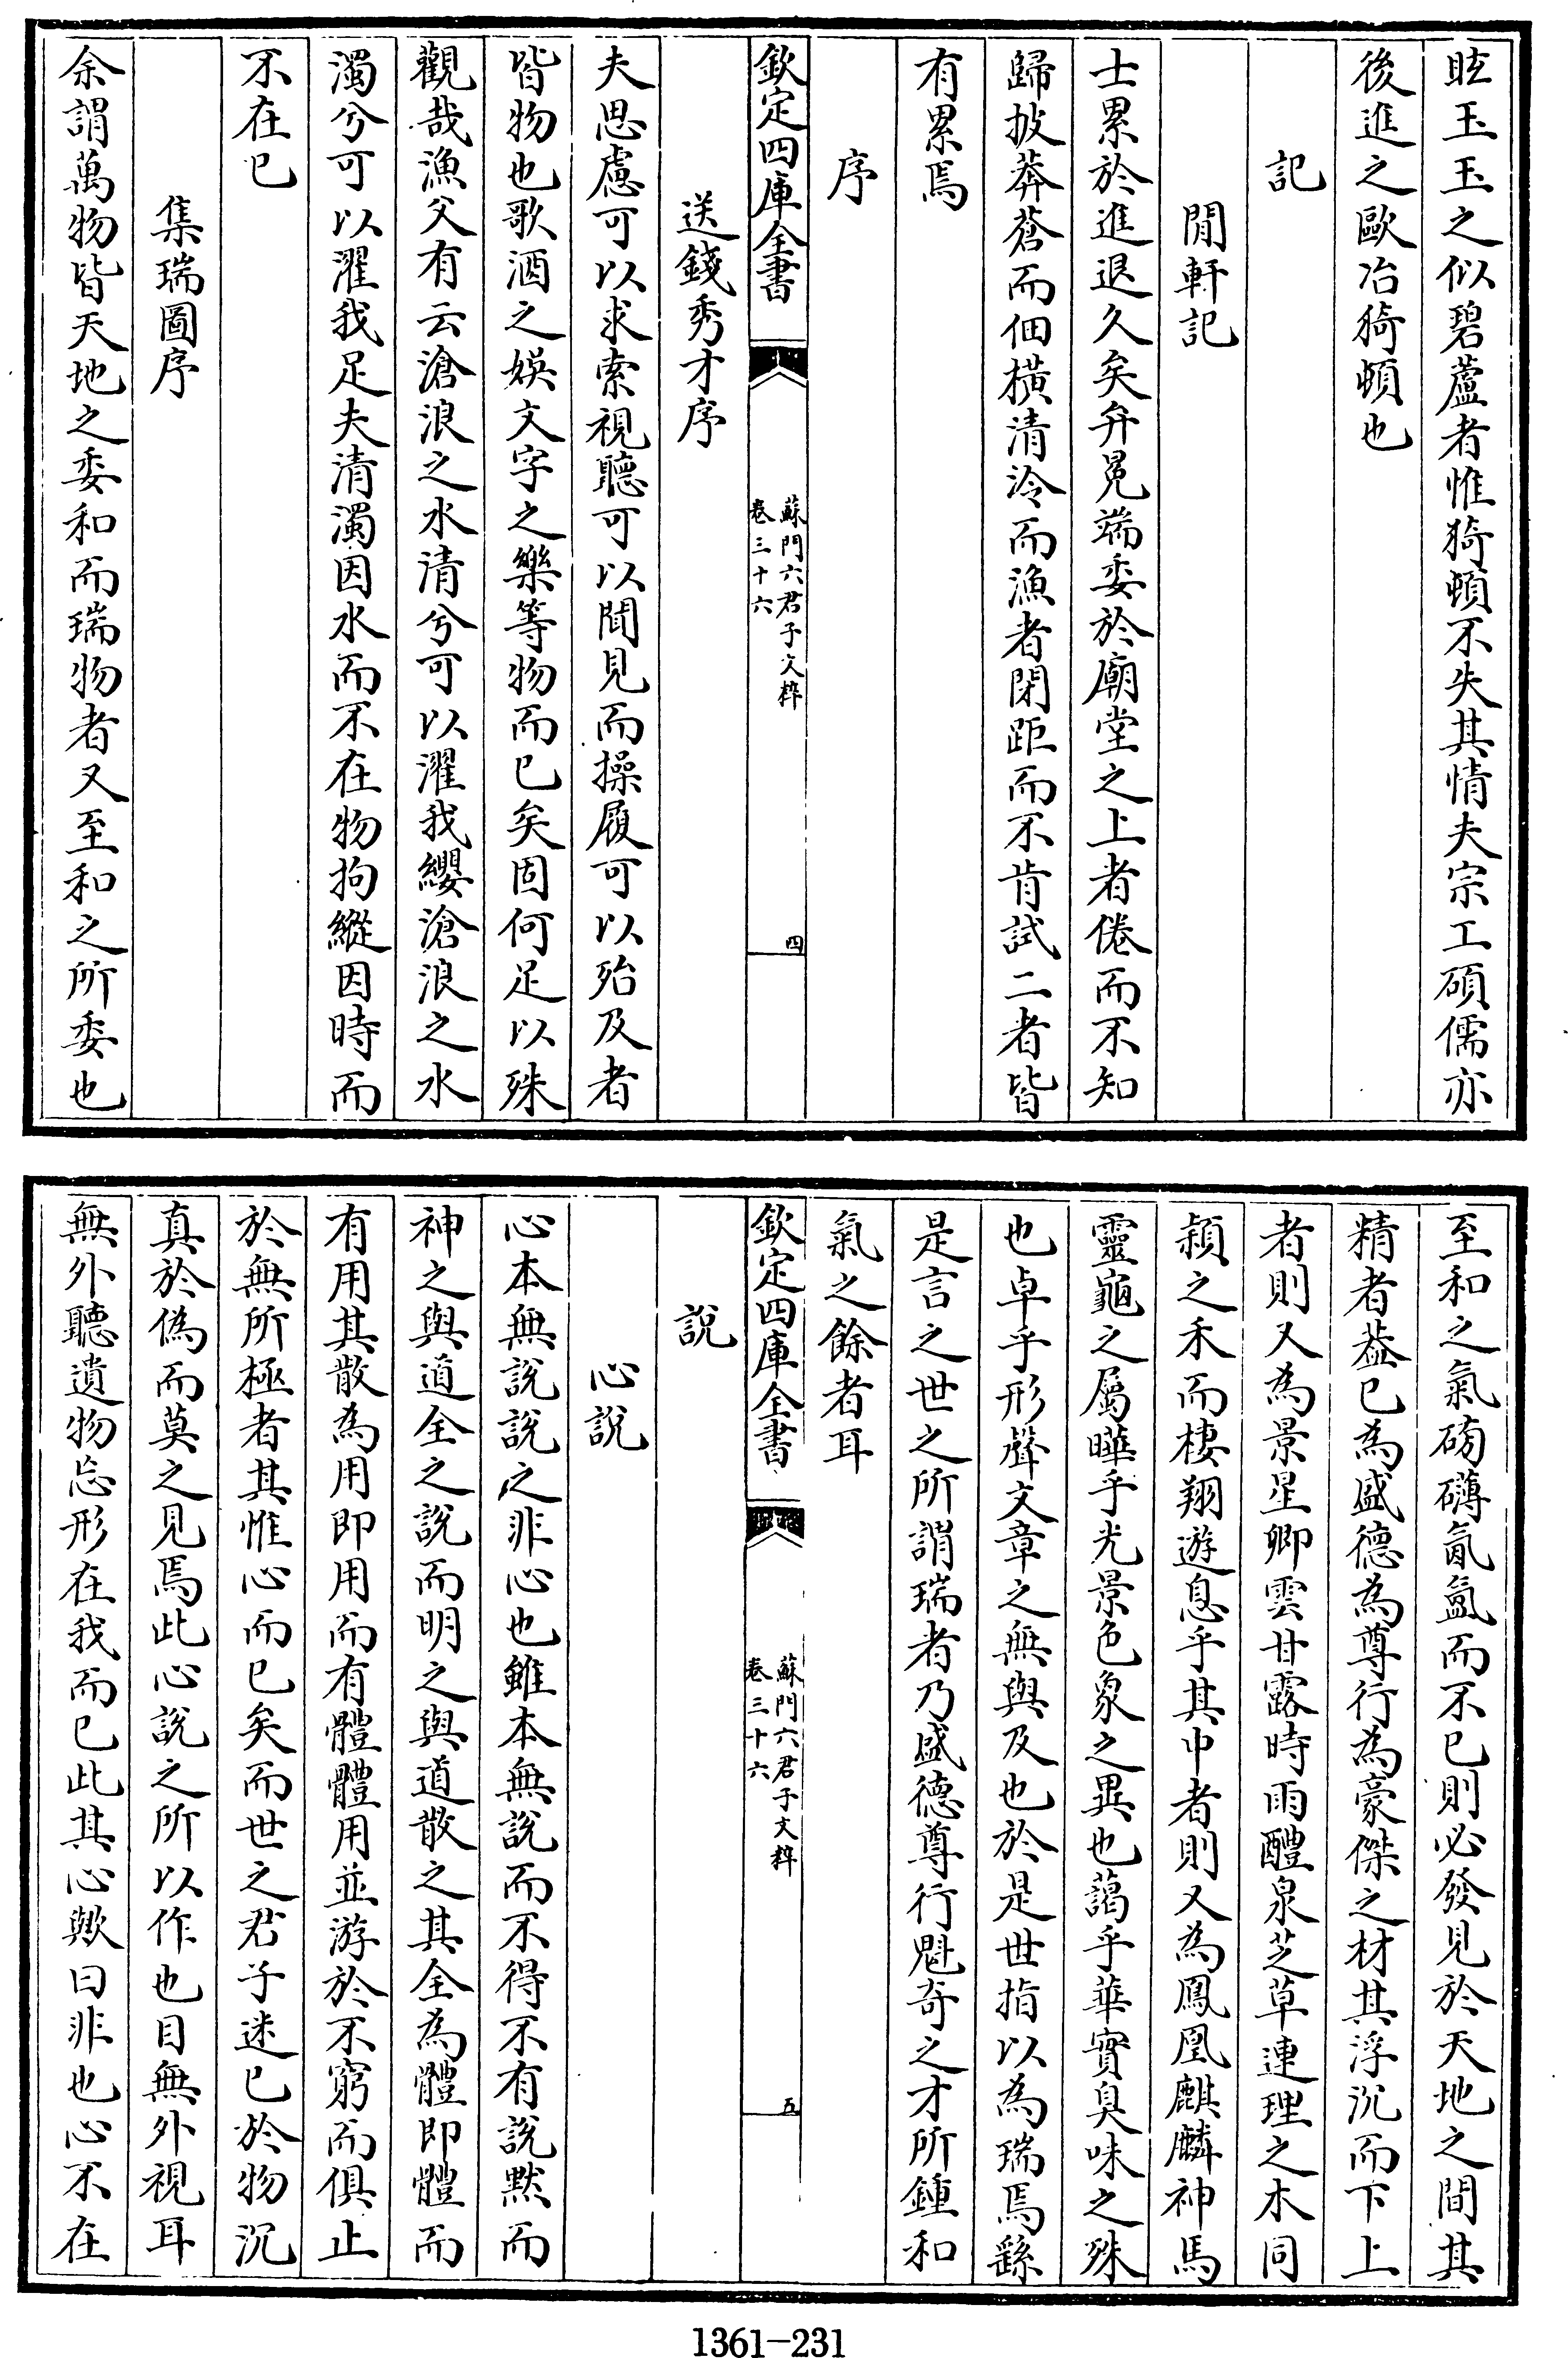 眩玉玉之似碧蘆者惟猗頓不失其情夫宗工碩儒亦
後進之歐冶猗頓也
記
閒軒記
士累於進退久矣弁冕端委於廟堂之上者倦而不知
歸披莽蒼而佃橫清泠而漁者閉距而不肯試二者皆
有累焉
序
欽定四庫全書
蘇門六君子文粹
卷三十六
四
送錢秀才序
夫思慮可以求索視聽可以聞見而操履可以殆及者
皆物也歌酒之娛文字之樂等物而已矣固何足以殊
觀哉漁父有云滄浪之水清兮可以濯我纓滄浪之水
濁兮可以濯我足夫清濁因水而不在物拘縱因時而
不在已
集瑞圖序
余謂萬物皆天地之委和而瑞物者又至和之所委也
至和之氣磅礴氤氳而不已則必發見於天地之間其
精者葢已為盛德為尊行為豪傑之材其浮沉而下上
者則又為景星卿雲甘露時雨醴泉芝草連理之木同
穎之禾而棲翔遊息乎其中者則又為鳳凰麒麟神馬
靈龜之屬曄乎光景色象之異也藹乎華實臭味之殊
也卓乎形聲文章之無與及也於是世指以為瑞焉繇
是言之世之所謂瑞者乃盛德尊行魁奇之才所鍾和
氣之餘者耳
欽定四庫全書
蘇門六君子文粹
卷三十六
五
說
心說
心本無說說之非心也雖本無說而不得不有說默而
神之與道全之說而明之與道散之其全為體即體而
有用其散為用即用而有體體用並游於不窮而俱止
於無所極者其惟心而已矣而世之君子迷已於物沉
真於偽而莫之見焉此心說之所以作也目無外視耳
無外聽遺物忘形在我而已此其心歟曰非也心不在
1361-231